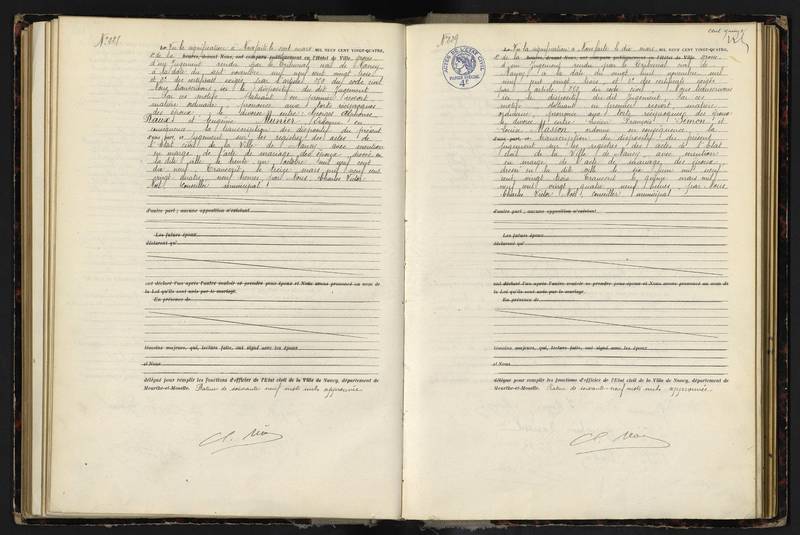 N° 228
Vu la signification à Nous faite le sept mars MIL NEUF CENT VINGT-QUATRE,
1° de la heures, devant Nous, ont comparu publiquement en l'Hôtel de Ville, grosse
d'un jugement rendu par le Tribunal civil de Nancy
à la date du sept novembre mil neuf cent vingt trois
et 2° des certificats exigés par l'article 252 du code civil
Nous transcrivons ici le dispositif du dit jugement
Par ces motifs Statuant en premier ressort
matière ordinaire, prononce aux torts réciproques
des époux le divorce entre Georges Alphonse
et Eugénie Meunier Ordonne en
conséquence la transcription du dispositif du présent
d'une part, et jugement sur les registres des actes de
l'Etat civil de la Ville de Nancy avec mention
en marge de l'acte de mariage des époux, dressé en
la dite ville le trente un octobre mil neuf cent
dix neuf. Transcrit le treize mars mil neuf cent
vingt quatre, neuf heures, par Nous, Charles Victor
Noël Conseiller municipal !
d'autre part ; aucune opposition n'existant
Les futurs époux
déclarent qu'
ont déclaré l'un après l'autre vouloir se prendre pour époux et Nous avons prononcé au nom de
la Loi qu'ils sont unis par le mariage.
En présence de
témoins majeurs, qui, lecture faite, ont signé avec les époux
et Nous
délégué pour remplir les fonctions d'officier de l'Etat civil de la Ville de Nancy, département de
Meurthe-et-Moselle. Rature de soixante neuf mots nuls approuvée
Ch. Noël
N° 229
ACTES DE L'ETAT CIVIL
PAPIER SPECIAL
Vu la signification à Nous faite le dix mars, MIL NEUF CENT VINGT-QUATRE,
1° de la heures, devant Nous, ont comparu publiquement en l'Hôtel de Ville, grosse
d'un jugement rendu par le Tribunal civil de
Nancy à la date du vingt huit novembre mil
neuf cent vingt trois et 2° des certificats exigés
par l'article 252 du code civil Nous transcrivons
ici le dispositif du dit jugement Par ces
motifs Statuant en premier ressort, matière
ordinaire, prononce aux torts réciproques des époux
le divorce entre Lucien François Simon et
Louise Masson, ordonne en conséquence la
d'une part, et transcription du dispositif du présent
jugement sur les registres des actes de l'Etat
civil de la Ville de Nancy avec mention
en marge de l'acte de mariage des époux,
dressé en la dite ville le dix juin mil neuf
cent vingt trois Transcrit le quinze mars mil
neuf cent vingt quatre neuf heures, par Nous
Charles Victor Noël, conseiller municipal
d'autre part ; aucune opposition n'existant
Les futurs époux
déclarent qu'
ont déclaré l'un après l'autre vouloir se prendre pour époux et Nous avons prononcé au nom de
la Loi qu'ils sont unis par le mariage.
En présence de
témoins majeurs, qui, lecture faite, ont signé avec les époux
et Nous
délégué pour remplir les fonctions d'officier de l'Etat civil de la Ville de Nancy, département de
Meurthe-et-Moselle. Rature de soixante neuf mots nuls approuvée
Ch. Noël